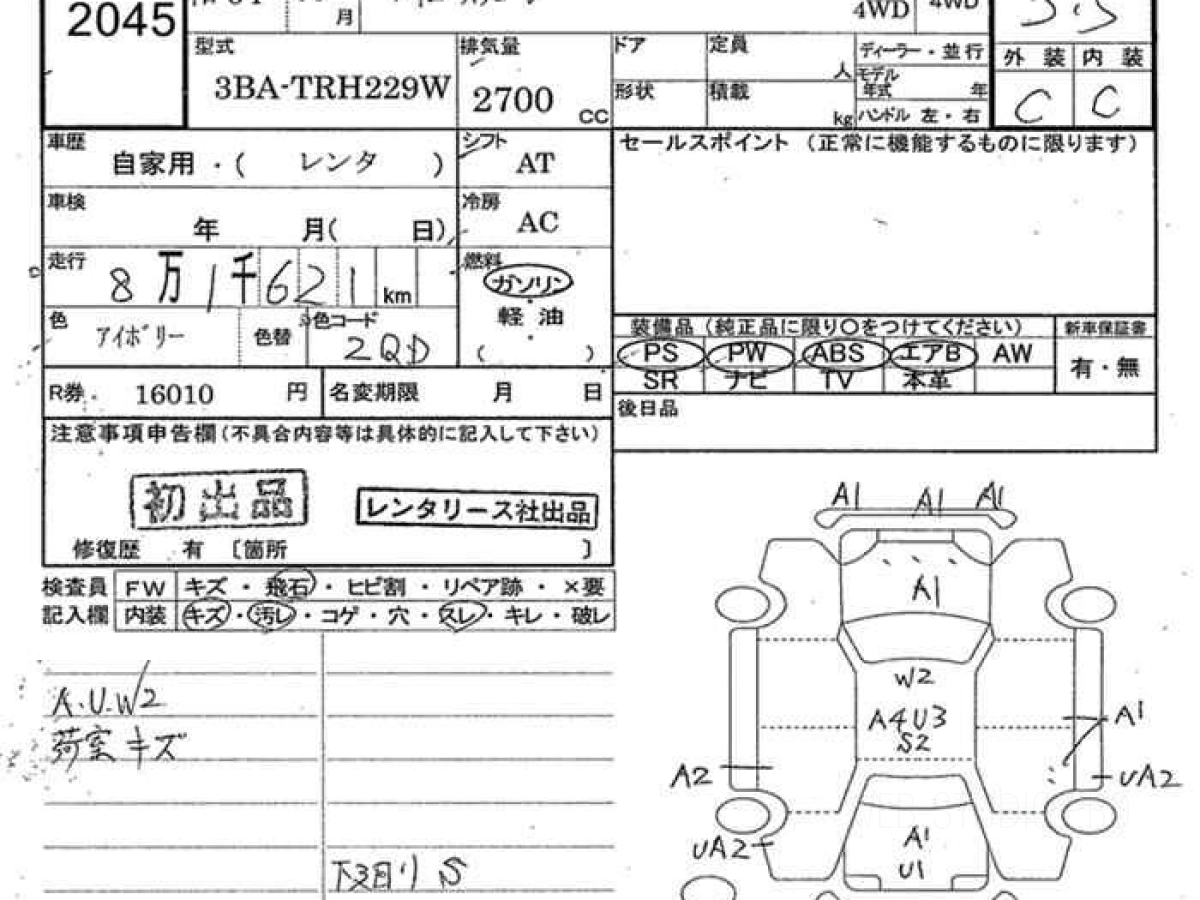 2045
月
4WD
4WD
型式
3BA-TRH229W
排気量
2700
CC
ドア
定員
人
ディーラー・並行
モデル
年式
年
形状
積載
kg
ハンドル 左・右
外装 内装
C C
車歴
自家用・( レンタ )
シフト
AT
セールスポイント (正常に機能するものに限ります)
車検
年 月( 日)
冷房
AC
走行
8万1千621km
燃料
ガソリン
軽油
( )
色
アイボリー
色替
色コード
2QD
装備品 (純正品に限り〇をつけてください)
新車保証書
PS PW ABS エアB AW
SR ナビ TV 本革
有・無
R券
16010 円
名変期限 月 日
後日品
注意事項申告欄(不具合内容等は具体的に記入して下さい)
初出品
レンタリース社出品
修復歴 有 〔箇所 〕
検査員 FW キズ・飛石・ヒビ割・リペア跡・×要
記入欄 内装 キズ・汚レ・コゲ・穴・スレ・キレ・破レ
A.U.W2
荷室キズ
S
A1 A1 A1
A1
W2
A4U3
S2
A1
A2
UA2
UA2
A1
U1